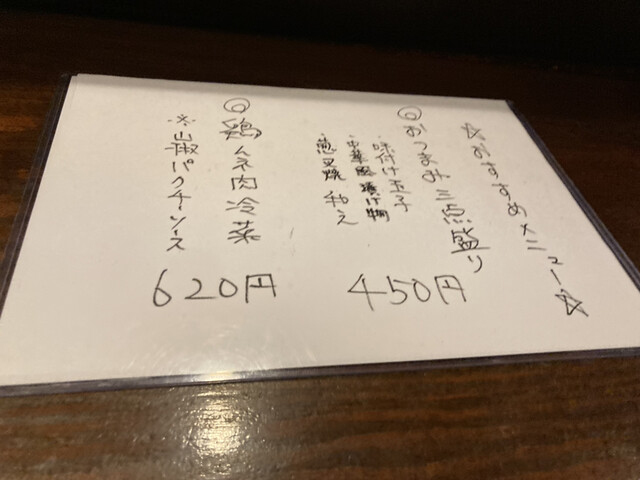 ☆おすすめメニュー☆
◎おつまみ三点盛り
・味付け玉子
・中華風漬け物
・葱叉焼和え
450円
◎鶏ムネ肉冷菜
※山椒パクチーソース
620円